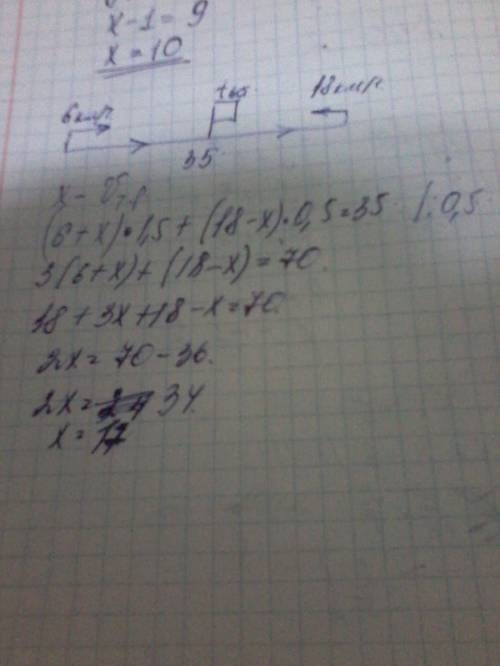 x-1=9
x=10
6км/ч
18км/ч
35
(6+x)•1,5+(18-x)•0,5=35 |:0,5
3(6+x)+(18-x)=70.
18+3x+18-x=70.
2x=70-36.
2x= 34.
x=17